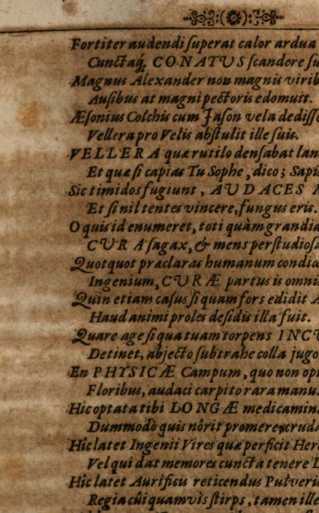 Fortiter audendi superat calor ardua
Cunctaq́; CONATUS scandere
Magnus Alexander non magnis
Ausibus at magni pectoris edomuit.
Æsonius Colchis cum Jason vela
Vellera pro Velis abstulit ille suis.
VELLERA quæ rutilo densabat
Et quæ si capias Tu Sophe, dico;
Sic timidos fugiunt, AUDACES
Et si nil tentes vincere, fungus eris.
O quis id enumeret, toti quàm
CURA sagax, & mens
Quotquot præclaras humanum
Ingenium, CURÆ partus is
Quin etiam casus si quam fors edidit
Haud animi proles desidis illa fuit.
Quare age si qua tuam torpens
Detinet, abjecto subtrahe colla jugo
En PHYSICÆ Campum, quo non
Floribus, audaci carpito rara manu.
Hic optata tibi LONGÆ
Dummodò quis nôrit promere
Hic latet Ingenii Vires quæ perficit
Vel qui dat memores cuncta tenere
Hic latet Aurificii reticendus
Regia cûi quamvis stirps, tamen ille